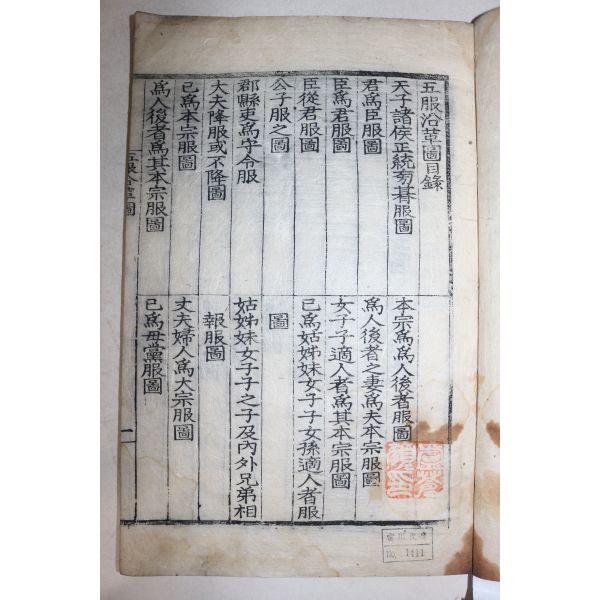 五服沿革圖目錄
天子諸侯正統旁朞服圖
君爲臣服圖
臣爲君服圖
臣從君服圖
公子服之圖
郡縣吏爲守令服
大夫降服或不降圖
已爲本宗服圖
爲人後者爲其本宗服圖
本宗爲爲人後者服圖
爲人後者之妻爲夫本宗服圖
女子子適人者爲其本宗服圖
已爲姑姊妹女子子女孫適人者服
圖
姑姊妹女子子之子及內外兄弟相
報服圖
丈夫婦人爲大宗服圖
已爲母黨服圖
五服沿革圖
一
No. 1411